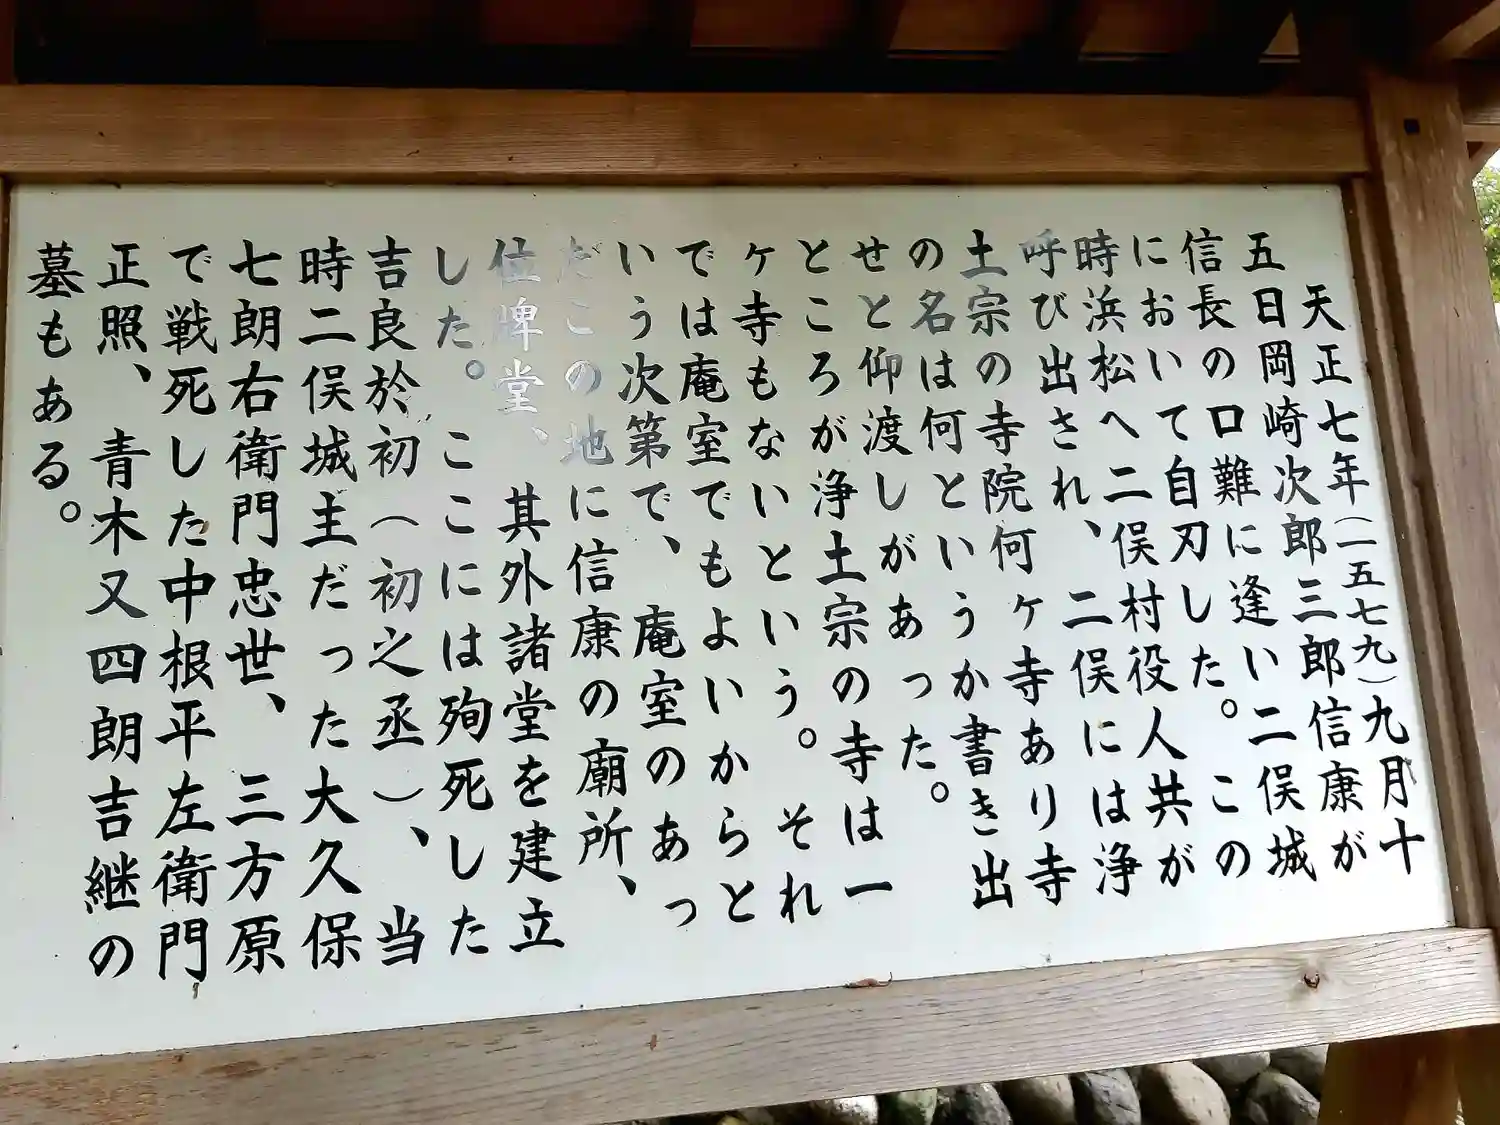 天正七年（一五七九）九月十
五日岡崎次郎三郎信康が
信長の口難に逢い二俣城
において自刃した。この
時浜松へ二俣村役人共が
呼び出され、二俣には浄
土宗の寺院何ヶ寺あり寺
の名は何というか書き出
せと仰渡しがあった。
ところが浄土宗の寺は一
ヶ寺もないという。それ
では庵室でもよいからと
いう次第で、庵室のあっ
たこの地に信康の廟所、
位牌堂、其外諸堂を建立
した。ここには殉死した
吉良於初（初之丞）、当
時二俣城主だった大久保
七朗右衛門忠世、三方原
で戦死した中根平左衛門
正照、青木又四朗吉継の
墓もある。